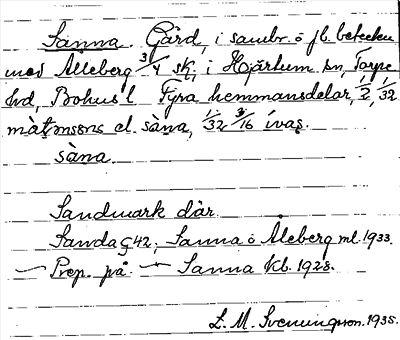 Sanna. Gård, i sambr. o jb. beteckn
med Ålleberg 3/4 sk, i Hjärtum sn, Torpe
hd, Bohus l. Fyra hemmansdelar, 1/2, 1/32
màtsnsons el. sàna, 1/32 3/16 ívas.
sàna.
Sandmark där.
Sanda G42; Sanna o Åleberg ml. 1933.
— Prep. på — Sanna Kb. 1928.
L. M. Svenungsson. 1935.